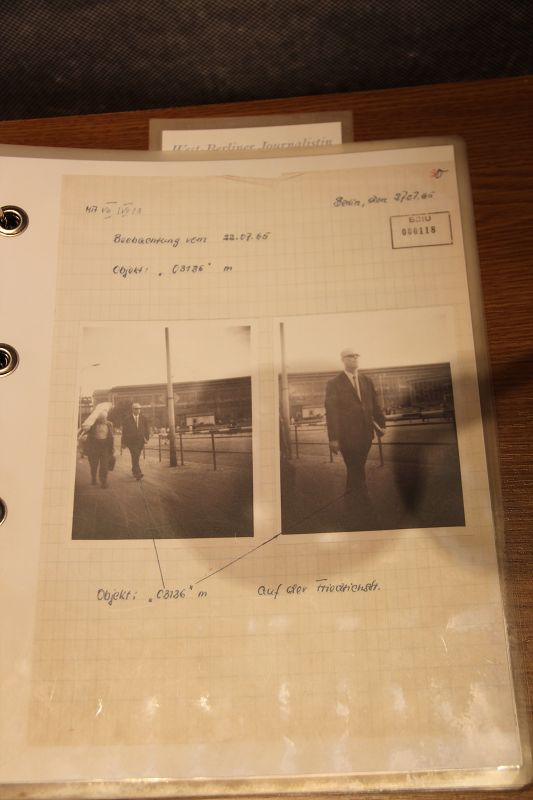 West-Berliner Journalistin
Berlin, den 27.07.65
BStU
000118
Beobachtung vom 22.07.65
Objekt: „03136" m
Objekt: „03136" m
auf der Friedrichstr.